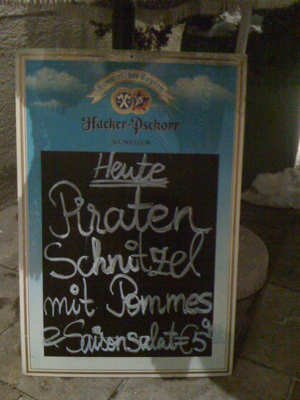 Himmel der Bayern
Hacker-Pschorr
MÜNCHEN
Heute
Piraten
Schnitzel
mit Pommes
& Saisonsalat €5,9